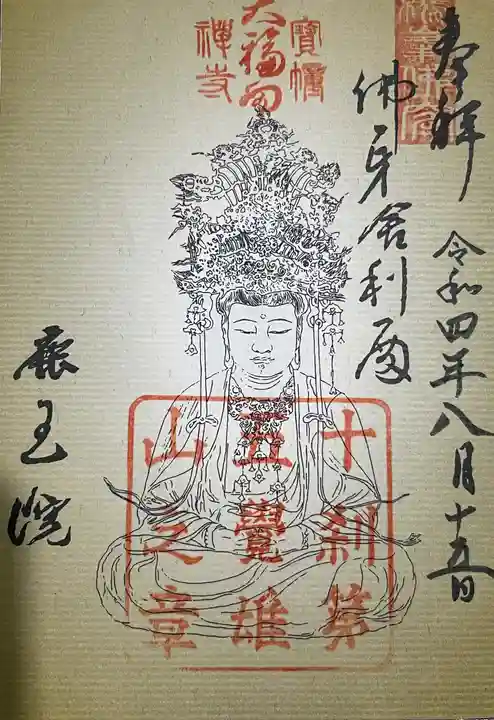 奉拝 令和四年八月十五日
佛牙舎利殿
寶幢
大福田
禪寺
十刹第
五覺雄
山之章
鹿王院